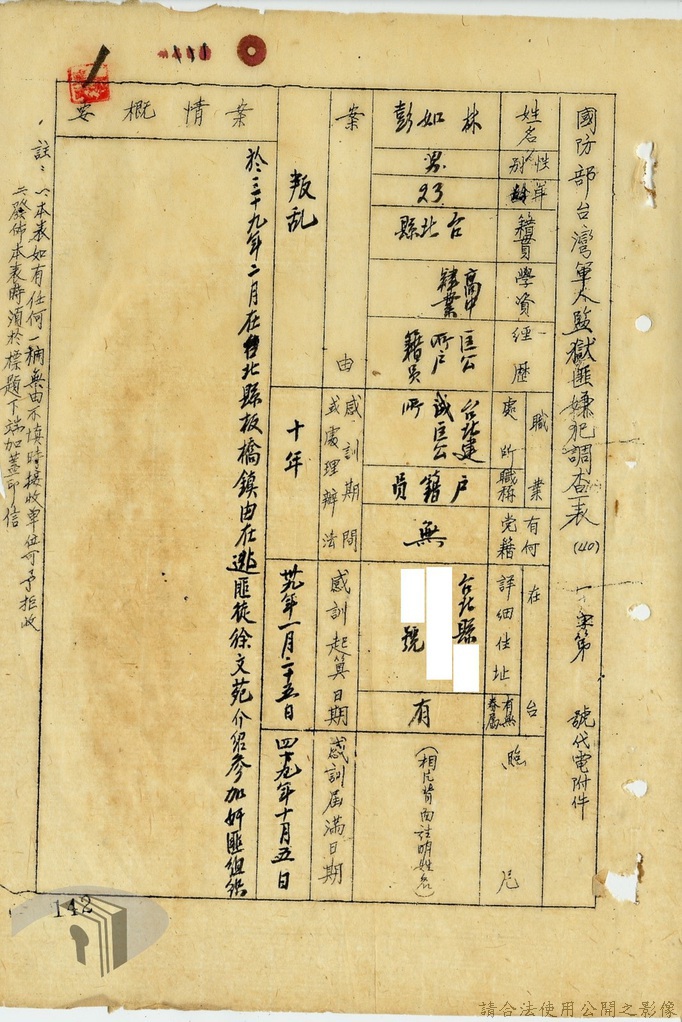 國防部台灣軍人監獄匪嫌犯調查表 (40) 字第 號代電附件
姓名 林如彭
性別 男
年齡 23
籍貫 台北縣
學資 高中肄業
經歷 區公所戶籍員
職業
處所 台北建成區公所
職稱 戶籍員
有何党籍 無
在台
詳細住址 台北縣 號
有無眷屬 有
照片
(相片背面註明姓名)
案由 叛乱
感訓期間或處理辦法 十年
感訓起算日期 卅九年 月二十五日
感訓屆滿日期 四十九年十月五日
案情概要
於三十九年二月在台北縣板橋鎮由在逃匪徒徐文苑介紹參加奸匪組織
註:㈠本表如有任何一欄無由不填時接收單位可予拒收
㈡發佈本表時須於標題下端加蓋印信
142
請合法使用公開之影像